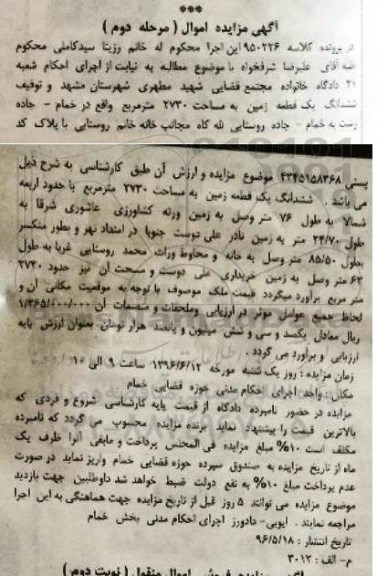 ***
آگهی مزایده اموال ( مرحله دوم )
در پرونده کلاسه ۹۵۰۲۲۶ این اجرا محکوم له خانم رزیتا سیدکاملی محکوم
علیه آقای علیرضا شرفخواه با موضوع مطالبه به نیابت از اجرای احکام شعبه
۲۱ دادگاه خانواده مجتمع قضایی شهید مطهری شهرستان مشهد و توقیف
ششدانگ یک قطعه زمین به مساحت ۲۷۳۰ مترمربع واقع در خمام - جاده
رشت به خمام - جاده روستایی تله گاه مجانب خانه خانم روستایی با پلاک کد
پستی ۴۳۴۵۱۵۸۳۶۸ موضوع مزایده و ارزش آن طبق کارشناسی به شرح ذیل
می باشد . ششدانگ یک قطعه زمین به مساحت ۲۷۳۰ مترمربع با حدود اربعه
شمالا به طول ۷۶ متر وصل به زمین ورثه کشاورزی عاشوری شرقا به
طول ۲۴/۷۰ متر به زمین نادر علی توست جنوبا در امتداد نهر و بطور منکسر
بطول ۸۵/۵۰ متر وصل به خانه و محاوط وراث محمد روستایی غربا به طول
۶۳ متر وصل به زمین خریداری علی دوست و مساحت آن نیز حدود ۲۷۳۰
متر مربع برآورد میگردد قیمت ملک موصوف با توجه به موقعیت مکانی آن و
لحاظ جمیع عوامل موثر در ارزیابی وملحقات و منضمات آن ۱/۳۶۵/۰۰۰/۰۰۰
ریال معادل یکصد و سی و شش میلیون و پانصد هزار تومان بعنوان ارزش پایه
ارزیابی و برآورد می گردد .
زمان مزایده : روز یک شنبه مورخه ۱۳۹۶/۶/۱۲ ساعت ۹ الی ۱۰
مکان: واحد اجرای احکام مدنی حوزه قضایی خمام
مزایده در حضور نامبرده دادگاه از قیمت پایه کارشناسی شروع و فردی که
بالاترین قیمت را پیشنهاد نماید برنده مزایده محسوب می گردد که نامبرده
مکلف است ۱۰% مبلغ مزایده فی المجلس پرداخت و مابقی آنرا ظرف یک
ماه از تاریخ مزایده به صندوق سپرده حوزه قضایی خمام واریز نماید در صورت
عدم پرداخت مبلغ ۱۰% به نفع دولت ضبط خواهد شد داوطلبین جهت بازدید
موضوع مزایده می توانند ۵ روز قبل از تاریخ مزایده جهت هماهنگی به این اجرا
مراجعه نمایند . ایوبی- دادورز اجرای احکام مدنی بخش خمام
تاریخ انتشار : ۹۶/۵/۱۸
م- الف : ۳۰۱۲
اموال منقول ( نوبت دوم )